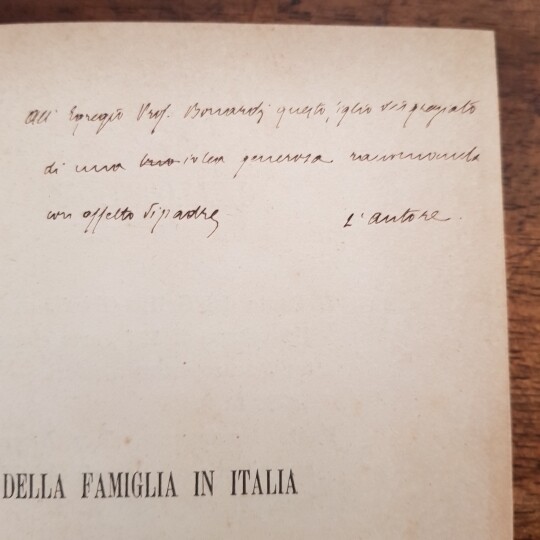 All' Egregio Prof. Bonardi questo figlio disgraziato
di una idea generosa raccomanda
con affetto di padre L'autore.
DELLA FAMIGLIA IN ITALIA